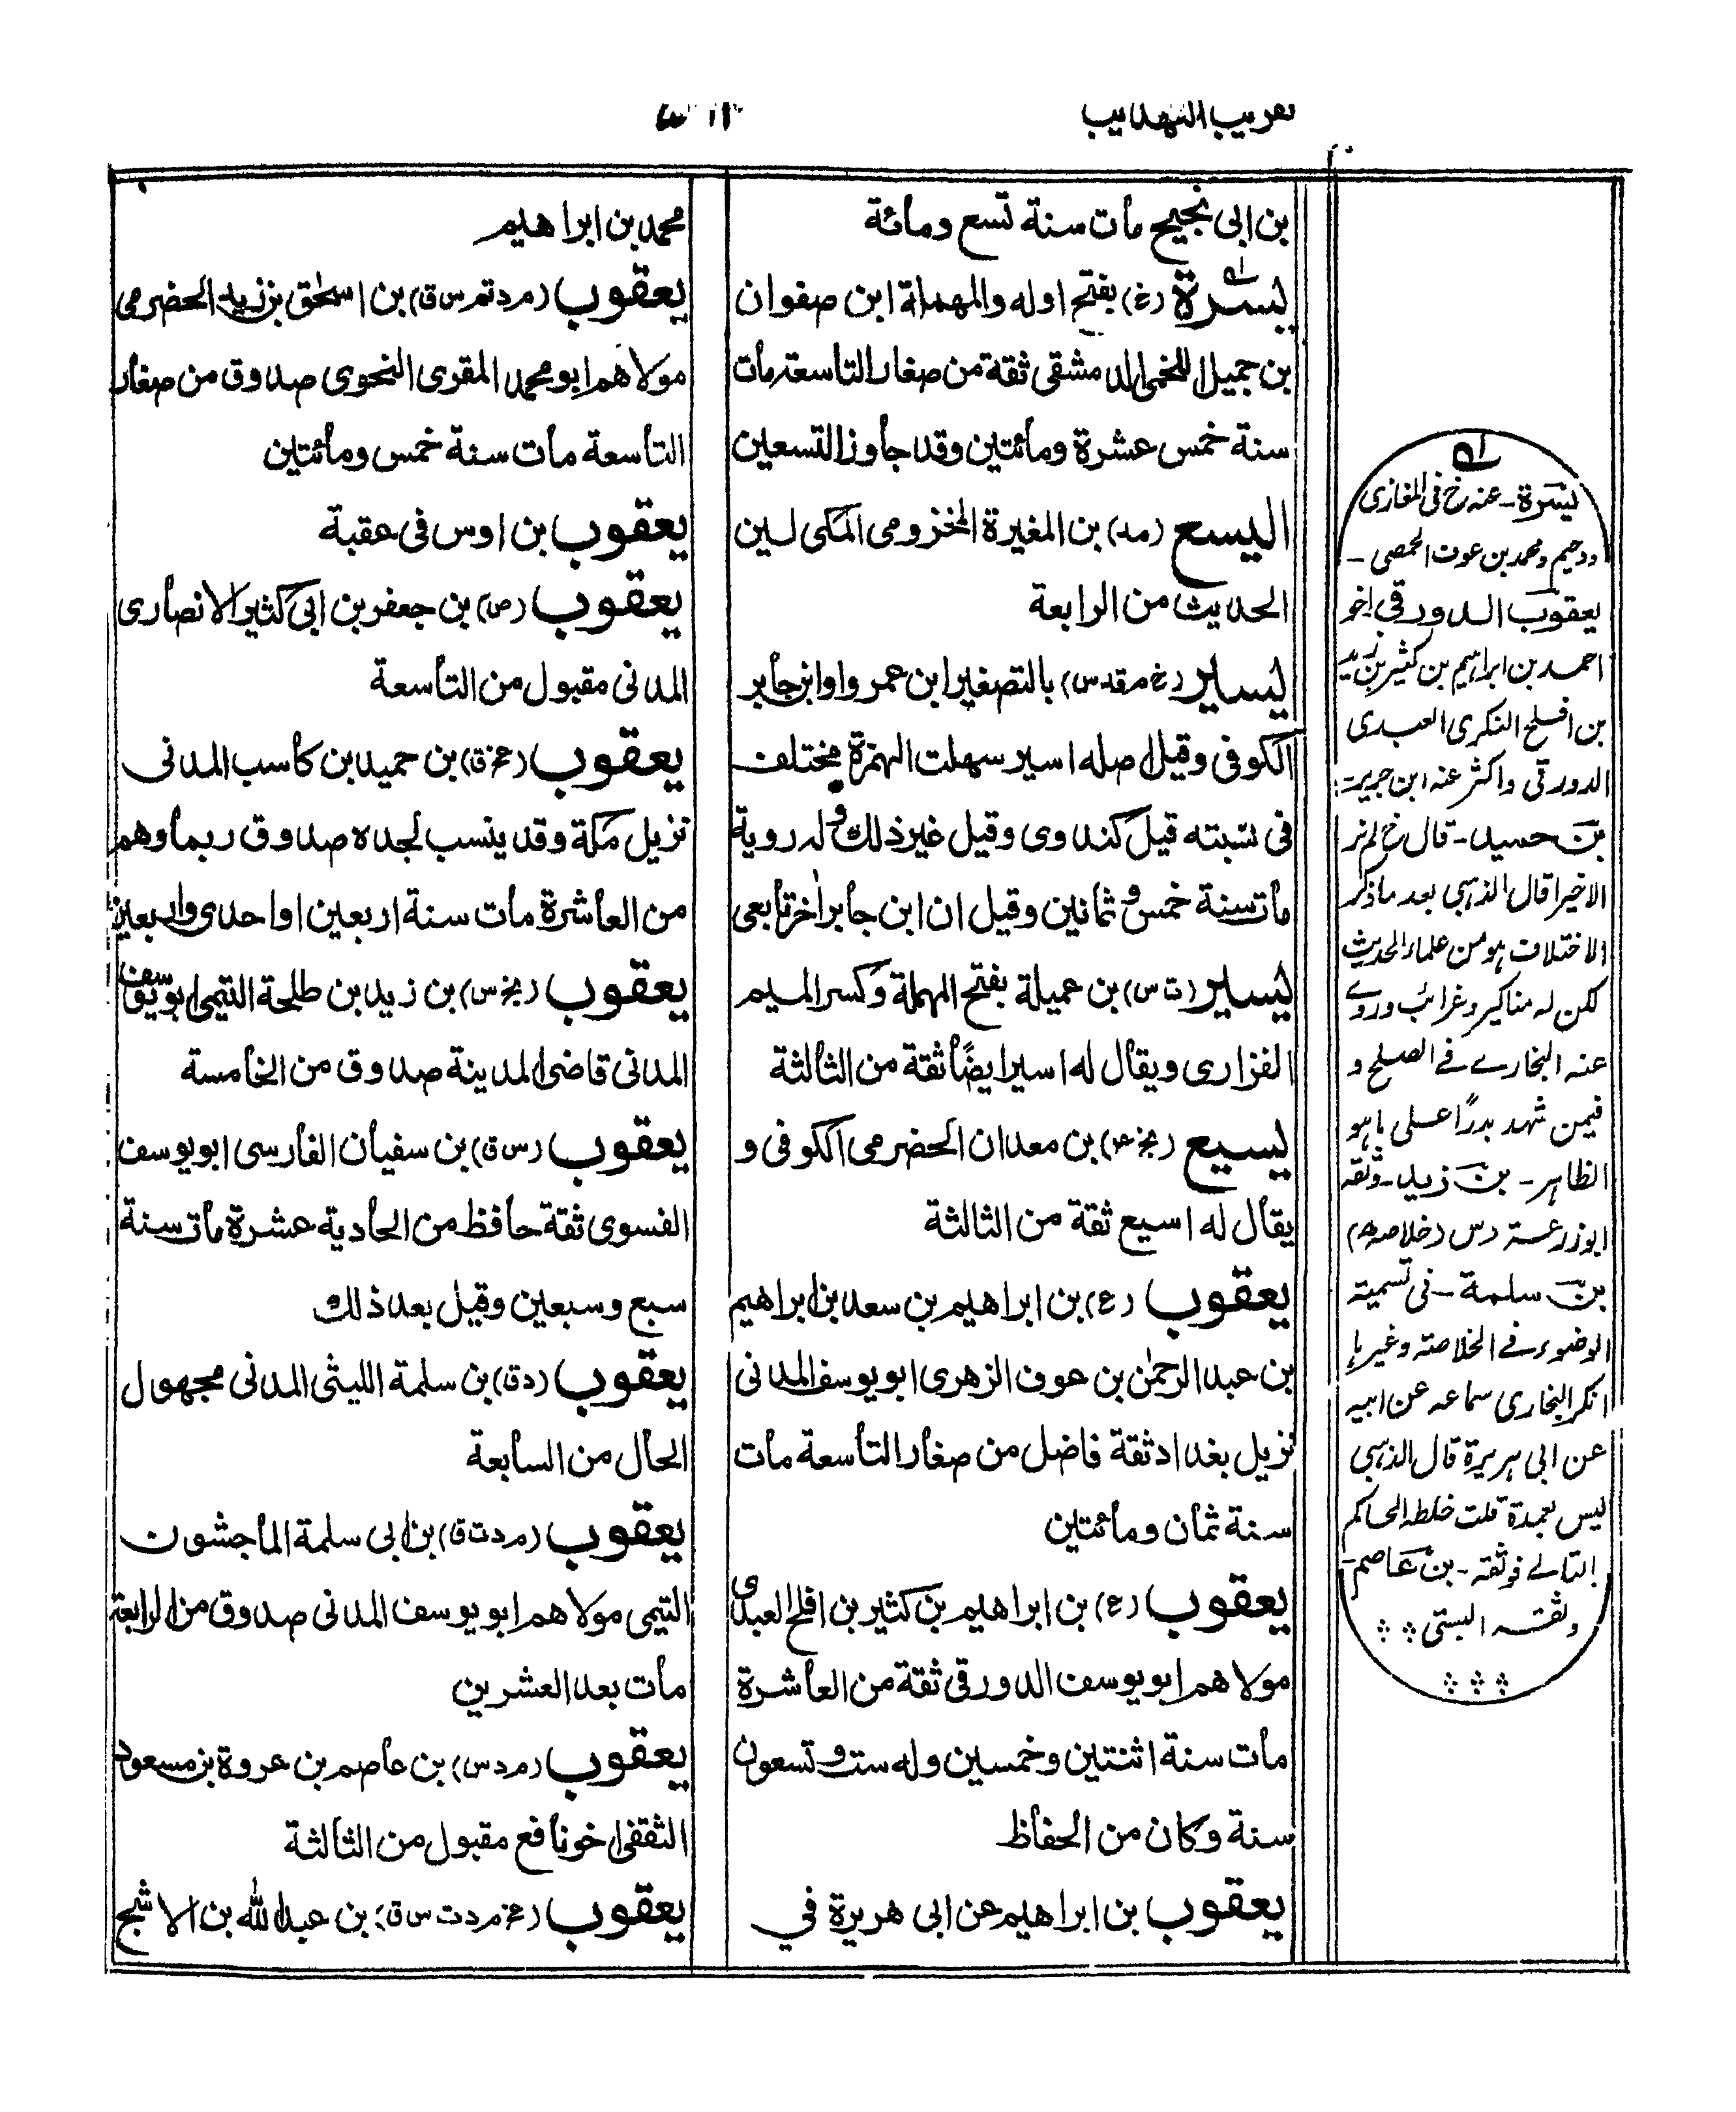 تقريب التهذيب
بن ابى نجيح مات سنة تسع ومائة
يسرة (خ) بفتح اوله والمهملة ابن صفوان
بن جميل اللخمى الدمشقى ثقة من صغار التاسعة مات
سنة خمس عشرة ومائتين وقد جاوز التسعين
اليسع (مد) بن المغيرة المخزومى المكى لين
الحديث من الرابعة
يسير (خ م قد س) بالتصغير ابن عمرو او ابن جابر
الكوفى وقيل اصله اسير سهلت الهمزة مختلف
فى نسبته قيل كندوى وقيل غير ذلك وله روية
مات سنة خمس وثمانين وقيل ان ابن جابر اخر تابعى
يسير (ت س) بن عميلة بفتح المهملة وكسر الميم
الفزارى ويقال له اسير ايضًا ثقة من الثالثة
يسيع (بخ عه) بن معدان الحضرمى الكوفى و
يقال له اسيع ثقة من الثالثة
يعقوب (ع) بن ابراهيم بن سعد بن ابراهيم
بن عبد الرحمٰن بن عوف الزهرى ابو يوسف المدنى
نزيل بغداد ثقة فاضل من صغار التاسعة مات
سنة ثمان ومائتين
يعقوب (ع) بن ابراهيم بن كثير بن افلح العبدى
مولاهم ابو يوسف الدورقى ثقة من العاشرة
مات سنة اثنتين وخمسين وله ست وتسعون
سنة وكان من الحفاظ
يعقوب بن ابراهيم عن ابى هريرة في
محمد بن ابراهيم
يعقوب (م د تم س ق) بن اسحٰق بن زيد الحضرمى
مولاهم ابو محمد المقرى النحوى صدوق من صغار
التاسعة مات سنة خمس ومائتين
يعقوب بن اوس فى عقبة
يعقوب (ص) بن جعفر بن ابى كثير الانصارى
المدنى مقبول من التاسعة
يعقوب (عخ ق) بن حميد بن كاسب المدنى
نزيل مكة وقد ينسب لجده صدوق ربما وهم
من العاشرة مات سنة اربعين او احدى واربعين
يعقوب (بخ س) بن زيد بن طلحة التيمى ابو يوسف
المدنى قاضى المدينة صدوق من الخامسة
يعقوب (س ق) بن سفيان الفارسى ابو يوسف
الفسوى ثقة حافظ من الحادية عشرة مات سنة
سبع وسبعين وقيل بعد ذلك
يعقوب (د ق) بن سلمة الليثى المدنى مجهول
الحال من السابعة
يعقوب (م د ت ق) بن ابى سلمة الماجشون
التيمى مولاهم ابو يوسف المدنى صدوق من الرابعة
مات بعد العشرين
يعقوب (م د س) بن عاصم بن عروة بن مسعود
الثقفى اخو نافع مقبول من الثالثة
يعقوب (عخ م د ت س ق) بن عبد الله بن الاشج
له
يسرة - عنه خ فى المغازى
ودحيم ومحمد بن عوف الحمصى -
يعقوب الدورقى اخو
احمد بن ابراهيم بن كثير بن زيد
بن افلح النكرى العبدى
الدورقى واكثر عنه ابن جرير
بن حميد - قال خ لم نر
الا خيرا قال الذهبى بعد ما ذكر
الاختلاف هو من علماء الحديث
لكن له مناكير وغرائب وروے
عنه البخارے فے الصلح و
فيمن شهد بدرًا على ما هو
الظاهر - بن زيد - وثقه
ابو زرعة دس (خلاصه)
بن سلمة - فى تسمية
الوضوء فے الخلاصة وغيرها
انكر البخارى سماعه عن ابيه
عن ابى هريرة قال الذهبى
ليس بعمدة قلت خلطه الحاكم
فوثقه - بن عاصم -
وثقه البستى